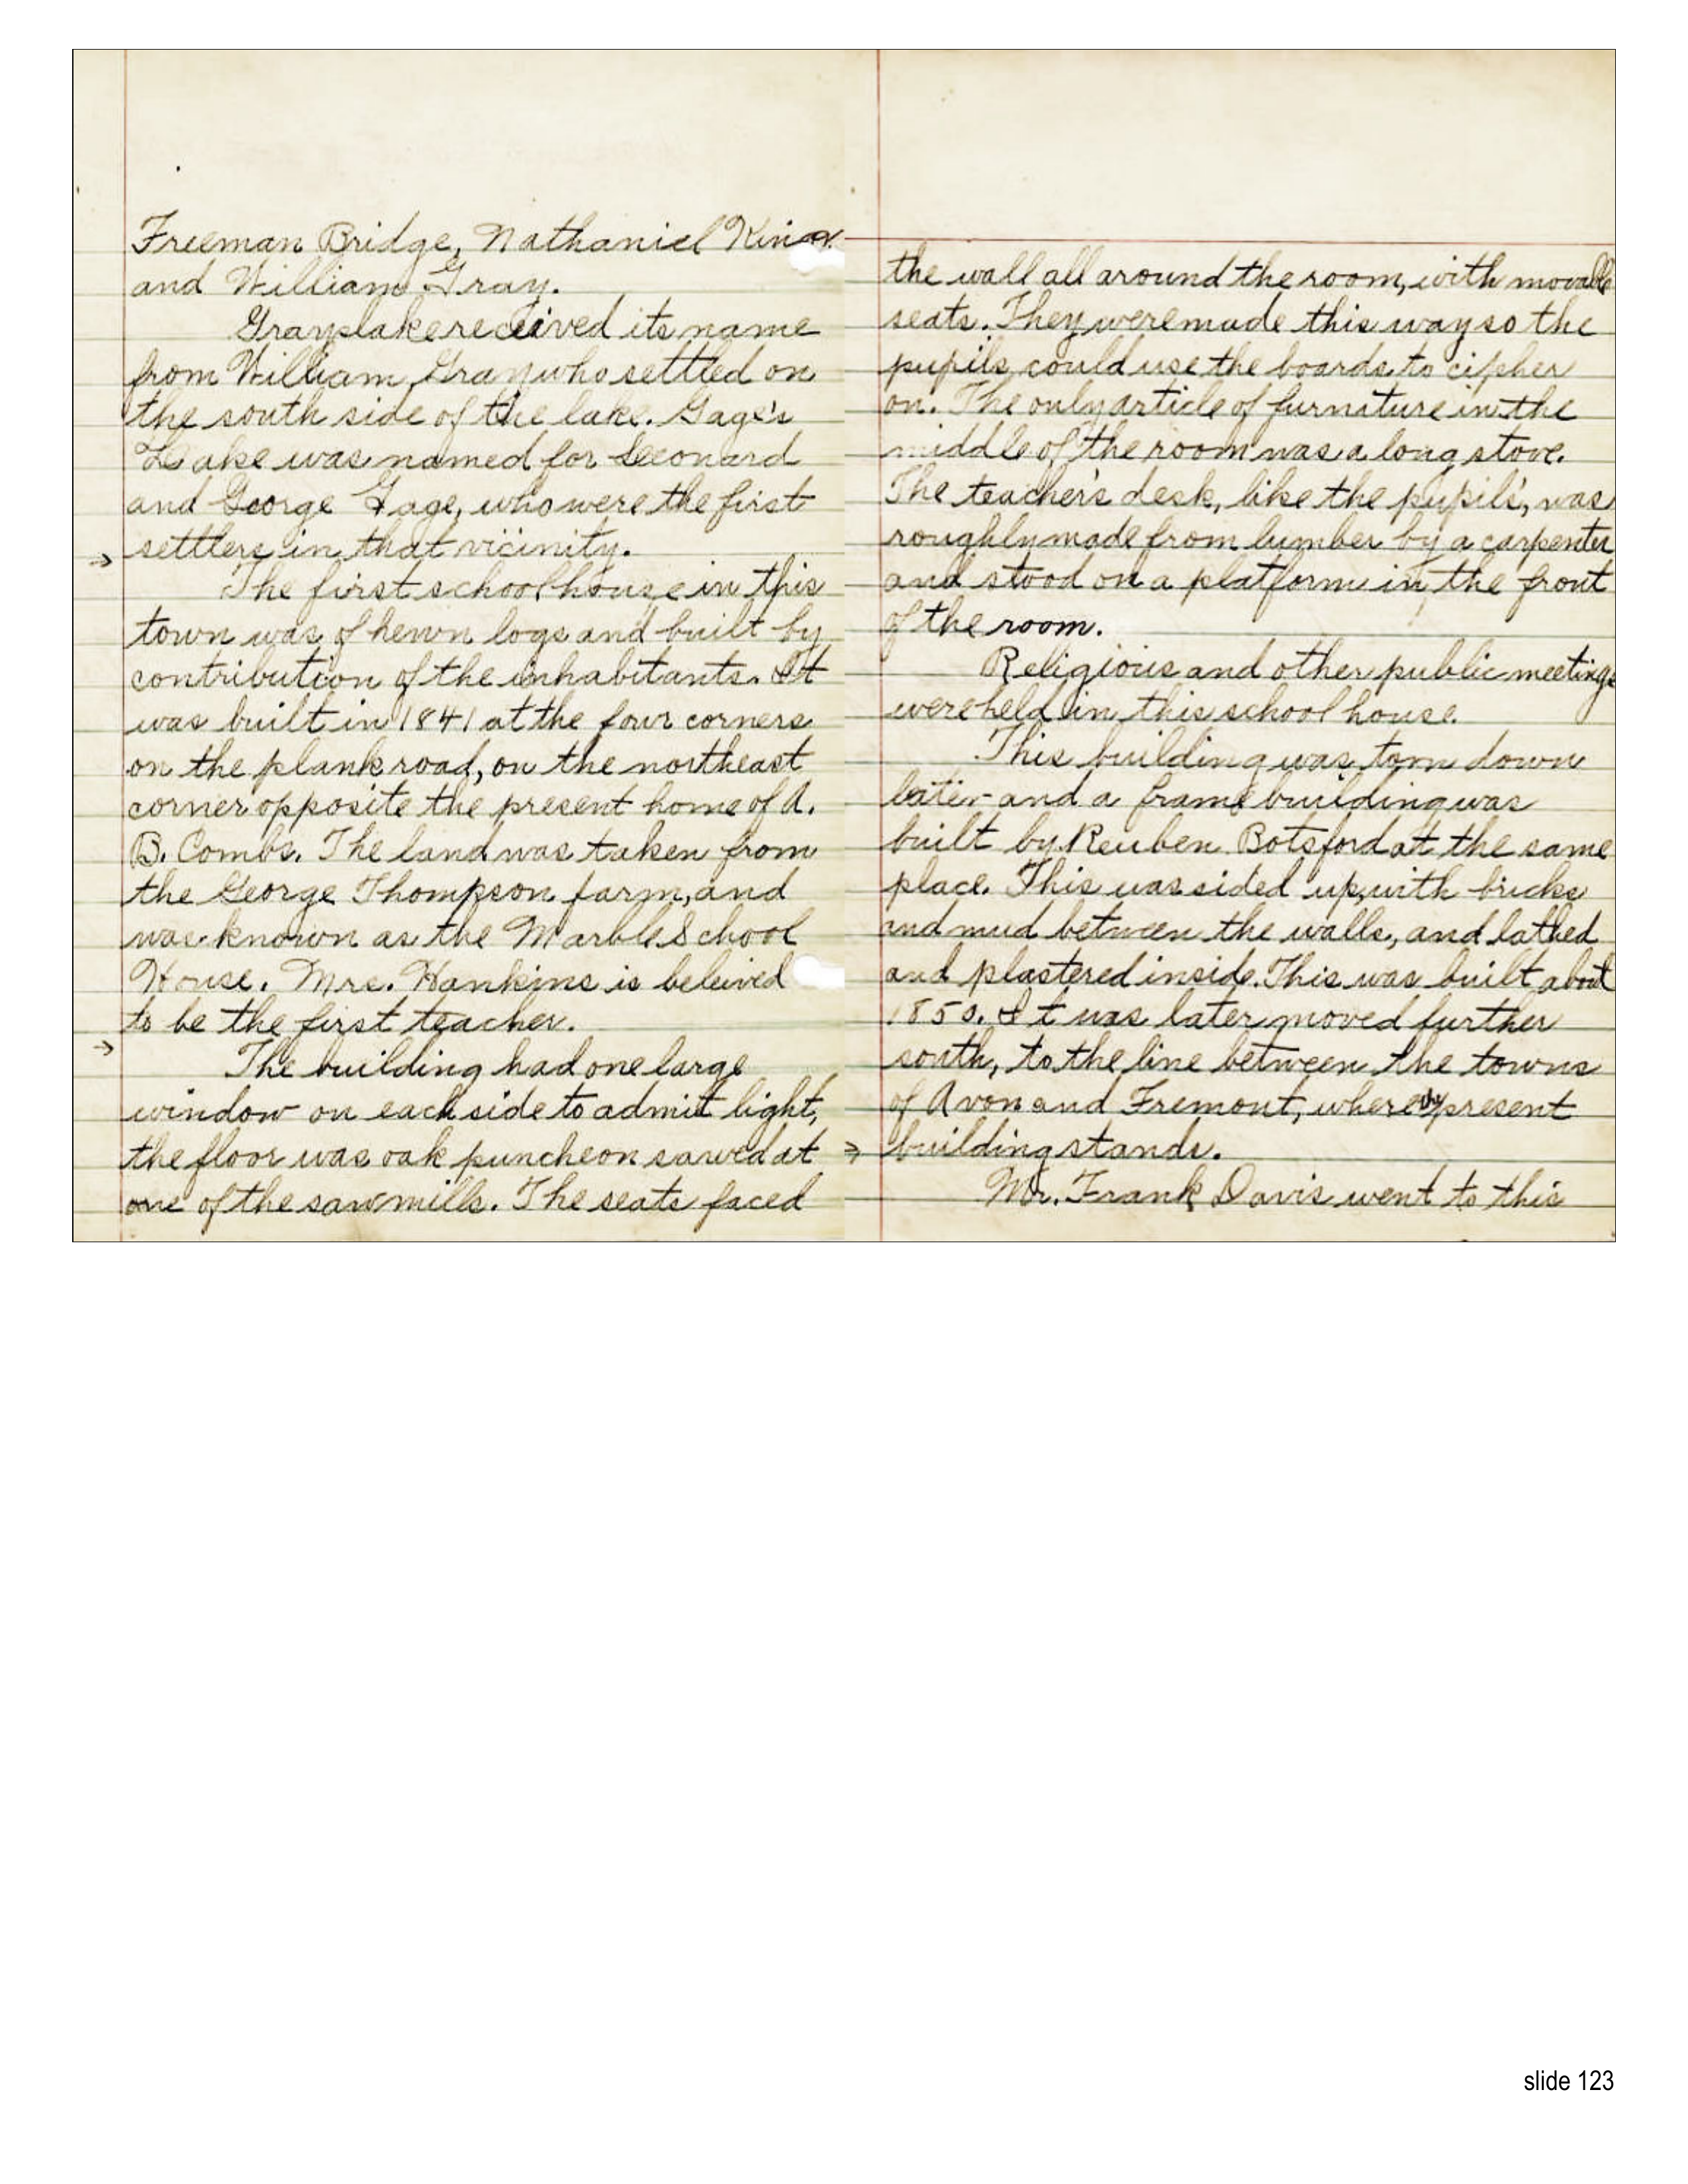 Freeman Bridge, Nathaniel King
and William Gray.
Grayslake received its name
from William Gray who settled on
the south side of the lake. Gage's
Lake was named for Leonard
and George Gage, who were the first
→ settlers in that vicinity.
The first school house in this
town was of hewn logs and built by
contribution of the inhabitants. It
was built in 1841 at the four corners
on the plank road, on the northeast
corner opposite the present home of A.
B. Combs. The land was taken from
the George Thompson farm, and
was known as the Marble School
House. Mrs. Hankins is beleived
to be the first teacher.
→ The building had one large
window on each side to admit light,
the floor was oak puncheon sawed at
one of the sawmills. The seats faced
the wall all around the room, with movable
seats. They were made this way so the
pupils could use the boards to cipher
on. The only article of furniture in the
middle of the room was a long stove.
The teacher's desk, like the pupils', was
roughly made from lumber by a carpenter
and stood on a platform in the front
of the room.
Religious and other public meetings
were held in this school house.
This building was torn down
later and a frame building was
built by Reuben Botsford at the same
place. This was sided up, with bricks
and mud between the walls, and lathed
and plastered inside. This was built about
1850. It was later moved further
south, to the line between the towns
of Avon and Fremont, where present
→ building stands.
Mr. Frank Davis went to this
slide 123